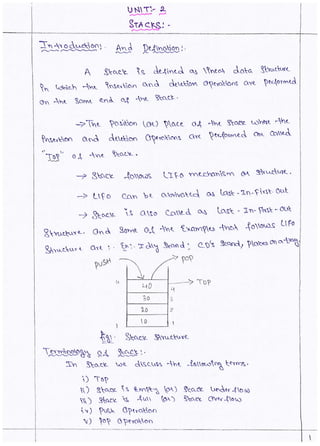 UNIT:- 2
STACKS:-
Introduction: And Defination:-
A Stack is defined as linear data Structure
in which the insertion and deletion operations are performed
on the same end of the stack.
→ The position (or) place of the Stack where the
insertion and deletion operations are performed are called
"Top" of the Stack.
→ Stack follows LIFo mechanism or structure.
→ LIFo can be abbrivated as Last-In-First Out
→ Stack is also called as Last-In-First-out
Structure. And Some of the Examples that follows LIFo
Structure are :- Ex:- Idly Stand; CD's Stand, Plates on a tray
PUSH POP
TOP
4 40 4
30 3
20 2
1 10 1
fig: Stack Structure
Terminology of Stack:-
In Stack we discuss the following terms.
i) Top
ii) Stack is Empty (or) Stack underflow
iii) Stack is full (or) Stack overflow
iv) Push Operation
v) Pop operation
1